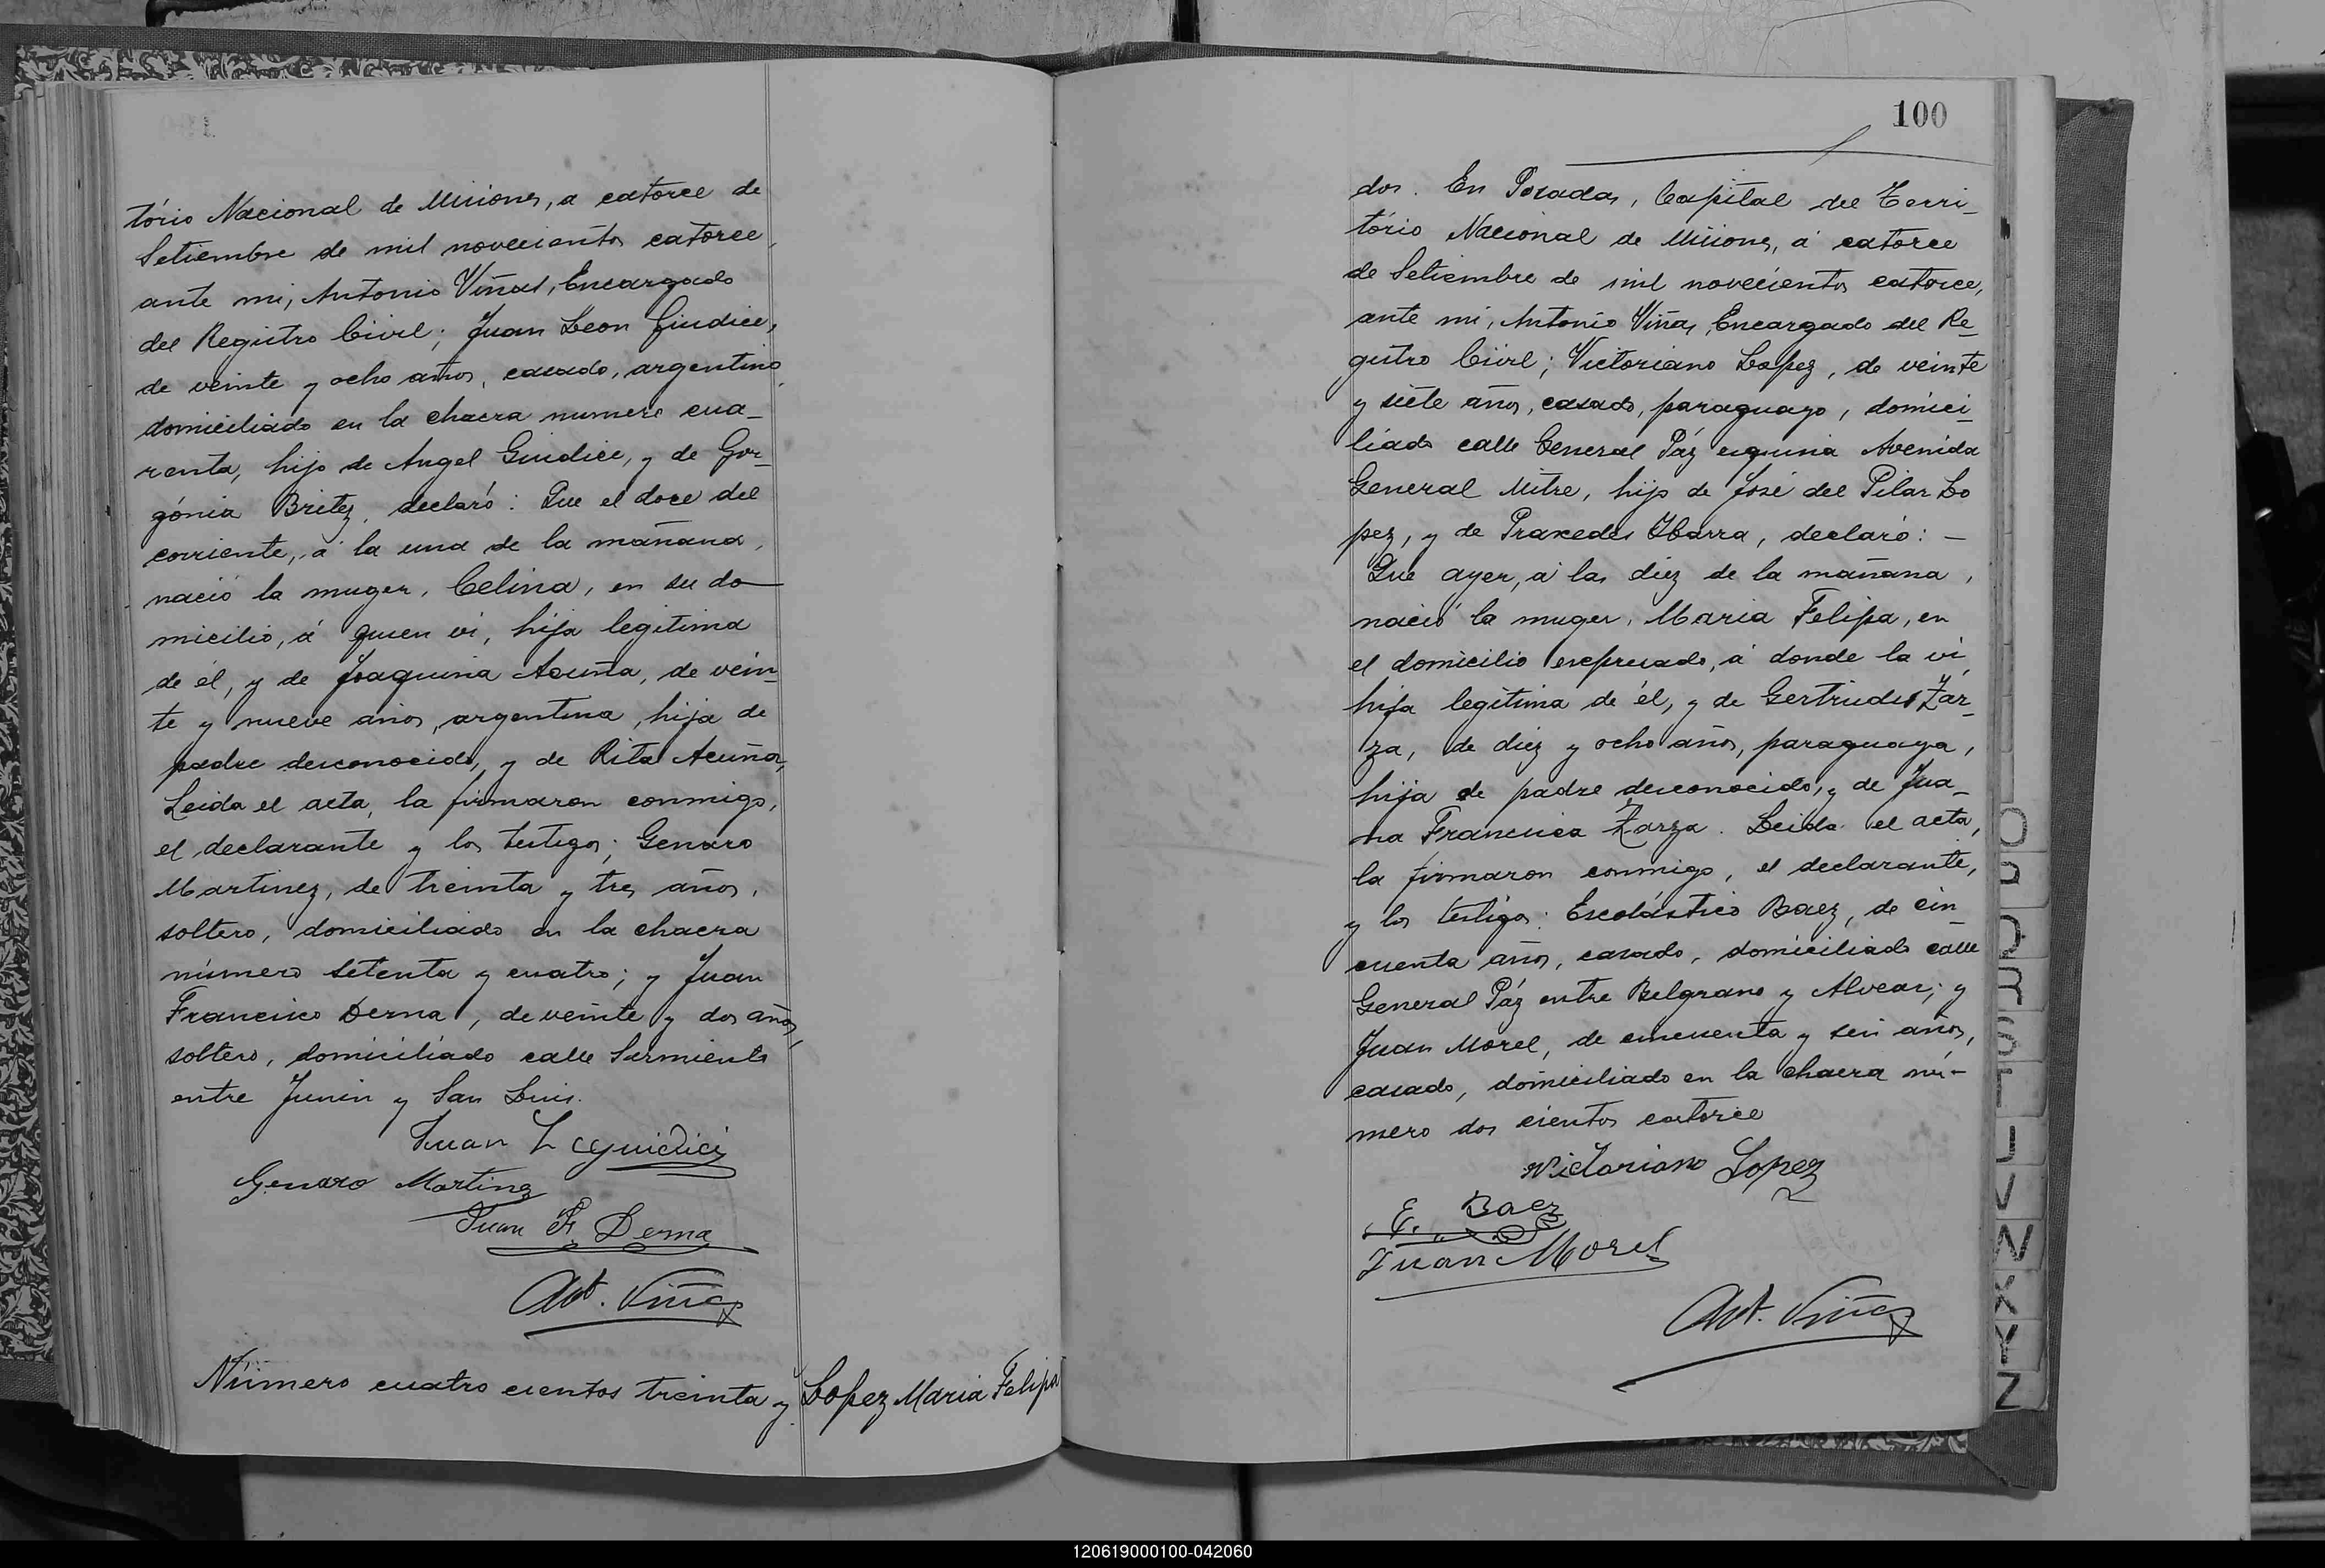 tório Nacional de Misiones, a catorce de
Setiembre de mil novecientos catorce,
ante mi, Antonio Viñas, Encargado
del Registro Civil; Juan Leon Giudice,
de veinte y ocho años, casado, argentino,
domiciliado en la chacra numero cua-
renta, hijo de Angel Giudice, y de Gor-
gónia Britez, declaró: Que el doce del
corriente, á la una de la mañana,
nació la muger, Celina, en su do-
micilio, á quien vi, hija legitima
de él, y de Joaquina Acuña, de vein-
te y nueve años, argentina, hija de
padre desconocido, y de Rita Acuña,
Leida el acta, la firmaron conmigo,
el declarante y los testigos; Genaro
Martinez, de treinta y tres años,
soltero, domiciliado en la chacra
número setenta y cuatro; y Juan
Francisco Derna, de veinte y dos años,
soltero, domiciliado calle Sarmiento
entre Junin y San Luis.
Juan L Guidici
Genaro Martinez
Juan F. Derna
Ant. Viñas
Número cuatro cientos treinta y
Lopez Maria Felipa
100
dos. En Posadas, Capital del Terri-
tório Nacional de Misiones, á catorce
de Setiembre de mil novecientos catorce,
ante mi, Antonio Viñas, Encargado del Re-
gistro Civil; Victoriano Lopez, de veinte
y siete años, casado, paraguayo, domici-
liado calle General Páz esquina Avenida
General Mitre, hijo de José del Pilar Lo
pez, y de Praxedes Ybarra, declaró: -
Que ayer, á las diez de la mañana,
nació la muger, Maria Felipa, en
el domicilio expresado, á donde la vi,
hija legitima de él, y de Gertrudis Zar-
za, de diez y ocho años, paraguaya,
hija de padre desconocido, y de Jua-
na Francisca Zarza. Leida el acta,
la firmaron conmigo, el declarante,
y los testigos: Escolástico Baez, de cin-
cuenta años, casado, domiciliado calle
General Páz entre Belgrano y Alvear; y
Juan Morel, de cincuenta y seis años,
casado, domiciliado en la chacra nú-
mero dos cientos catorce
Victoriano Lopez
E. Baez
Juan Morel
Ant. Viñas
O
Q
R
S
T
U
V
W
X
Y
Z
120619000100-042060